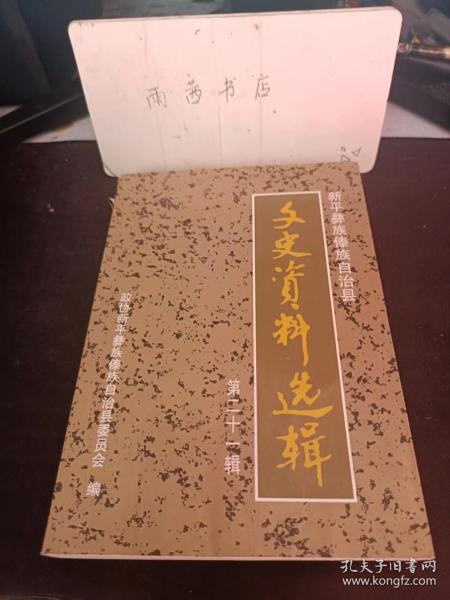 雨茜书店
新平彝族傣族自治县
文史资料选辑
第二十一辑
政协新平彝族傣族自治县委员会 编
孔夫子旧书网
www.kongfz.com